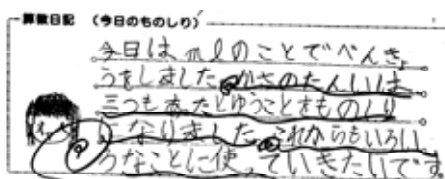 算数日記 (今日のものしり)
今日はmlのことでべんきょ
うをしました。かさのたんいは
三つもあたとゆうことをものしり
になりました。これからもいろい
ろなことに使っていきたいです